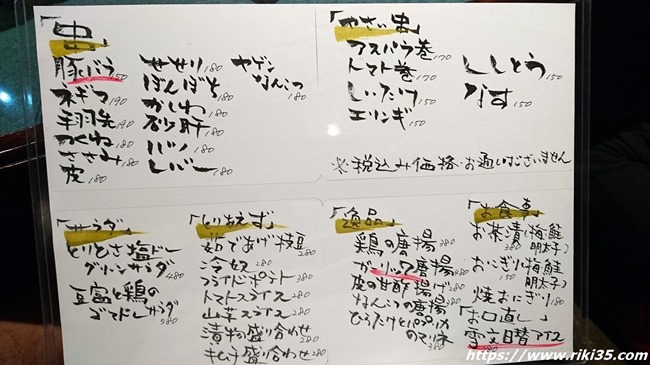 「串」
豚バラ 180
ネギマ 190
手羽先 190
つくね 180
ささみ 180
皮 180
せせり 180
ぼんぼち 180
かしわ 180
砂肝 180
ハツ 180
レバー 180
ヤゲン
なんこつ 180
「やさい串」
アスパラ巻 170
トマト巻 170
しいたけ 150
エリンギ 150
ししとう 150
なす 150
※税込み価格・お通しはございません
「サラダ」
とりささ塩ドレ
グリーンサラダ 480
豆富と鶏の
ゴマドレサラダ 580
「とりあえず」
茹であげ枝豆 280
冷奴 280
フライドポテト 380
トマトスライス 280
山芋スライス 280
漬物盛り合わせ 280
キムチ盛り合わせ 280
「逸品」
鶏の唐揚 380
ガーリック唐揚 480
皮の甘酢揚げ 280
なんこつの唐揚 380
ひらたけとパプリカ
のマリネ 380
「お食事」
お茶漬(梅 鮭
明太子) 380
おにぎり(梅 鮭
明太子) 280
焼おにぎり 180
「お口直し」
雪文日替アイス 280
https://www.riki35.com